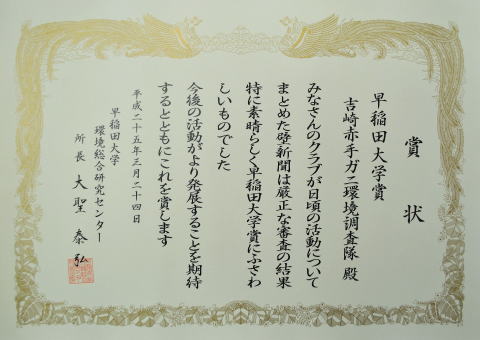 賞状
早稲田大学賞
吉崎赤手ガニ環境調査隊 殿
みなさんのクラブが日頃の活動について
まとめた壁新聞は厳正な審査の結果
特に素晴らしく早稲田大学賞にふさわ
しいものでした
今後の活動がより発展することを期待
するとともにこれを賞します
平成二十五年三月二十四日
早稲田大学
環境総合研究センター
所長 大聖 泰弘